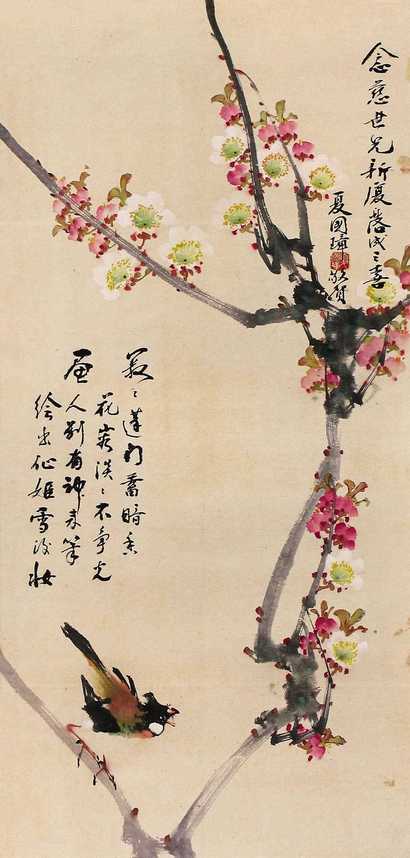 念慈世兄新廈落成之喜
夏國敬賀
寂々蓬門蓄暗香
花容淡々不爭光
畫人別有神來筆
繪出仙姬雪後妝